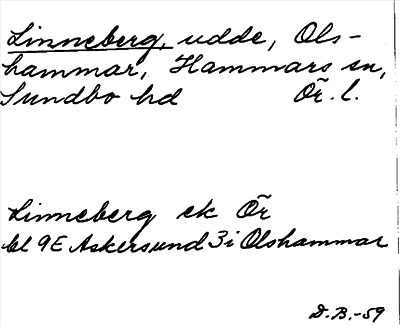 Linneberg, udde, Ols-
hammar, Hammars sn,
Sundbo hd Ör. l.
Linneberg ek Ör
bl 9E Askersund 3i Olshammar
D.B.-59